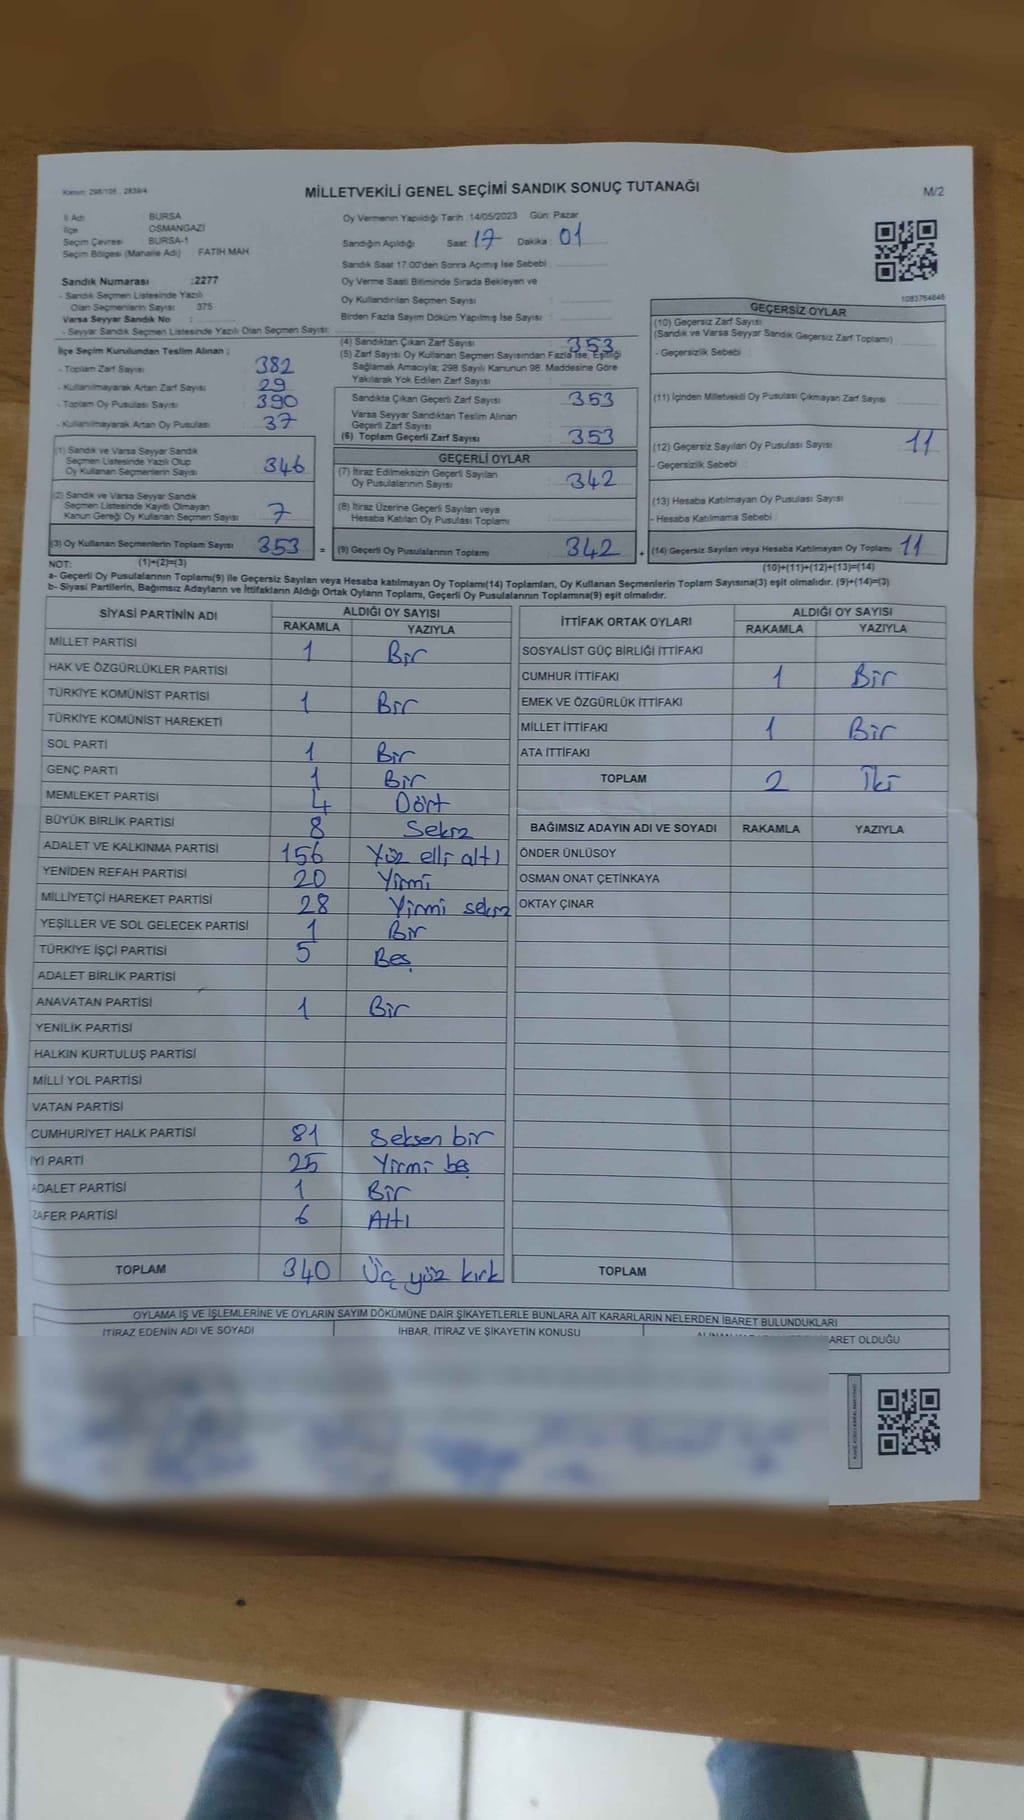 Kanun: 298/105 , 2839/4
MİLLETVEKİLİ GENEL SEÇİMİ SANDIK SONUÇ TUTANAĞI
M/2
İl Adı : BURSA
İlçe : OSMANGAZİ
Seçim Çevresi : BURSA-1
Seçim Bölgesi (Mahalle Adı) : FATİH MAH
Sandık Numarası :2277
- Sandık Seçmen Listesinde Yazılı
Olan Seçmenlerin Sayısı : 375
Varsa Seyyar Sandık No :
- Seyyar Sandık Seçmen Listesinde Yazılı Olan Seçmen Sayısı:
Oy Vermenin Yapıldığı Tarih :14/05/2023 Gün: Pazar
Sandığın Açıldığı Saat: 17 Dakika : 01
Sandık Saat 17:00'den Sonra Açımış İse Sebebi :
Oy Verme Saati Bitiminde Sırada Bekleyen ve
Oy Kullandırılan Seçmen Sayısı :
Birden Fazla Sayım Döküm Yapılmış İse Sayısı :
1083764646
İlçe Seçim Kurulundan Teslim Alınan ;
- Toplam Zarf Sayısı : 382
- Kullanılmayarak Artan Zarf Sayısı : 29
- Toplam Oy Pusulası Sayısı : 390
- Kullanılmayarak Artan Oy Pusulası : 37
(1) Sandık ve Varsa Seyyar Sandık
Seçmen Listesinde Yazılı Olup
Oy Kullanan Seçmenlerin Sayısı : 346
(2) Sandık ve Varsa Seyyar Sandık
Seçmen Listesinde Kayıtlı Olmayan
Kanun Gereği Oy Kullanan Seçmen Sayısı : 7
(3) Oy Kullanan Seçmenlerin Toplam Sayısı 353 =
(1)+(2)=(3)
(4) Sandıktan Çıkan Zarf Sayısı : 353
(5) Zarf Sayısı Oy Kullanan Seçmen Sayısından Fazla İse, Eşitliği
Sağlamak Amacıyla; 298 Sayılı Kanunun 98. Maddesine Göre
Yakılarak Yok Edilen Zarf Sayısı :
Sandıkta Çıkan Geçerli Zarf Sayısı : 353
Varsa Seyyar Sandıktan Teslim Alınan
Geçerli Zarf Sayısı :
(6) Toplam Geçerli Zarf Sayısı : 353
GEÇERLİ OYLAR
(7) İtiraz Edilmeksizin Geçerli Sayılan
Oy Pusulalarının Sayısı : 342
(8) İtiraz Üzerine Geçerli Sayılan veya
Hesaba Katılan Oy Pusulası Toplamı :
(9) Geçerli Oy Pusulalarının Toplamı 342 +
GEÇERSİZ OYLAR
(10) Geçersiz Zarf Sayısı
(Sandık ve Varsa Seyyar Sandık Geçersiz Zarf Toplamı) :
- Geçersizlik Sebebi :
(11) İçinden Milletvekili Oy Pusulası Çıkmayan Zarf Sayısı :
(12) Geçersiz Sayılan Oy Pusulası Sayısı : 11
- Geçersizlik Sebebi :
(13) Hesaba Katılmayan Oy Pusulası Sayısı :
- Hesaba Katılmama Sebebi :
(14) Geçersiz Sayılan veya Hesaba Katılmayan Oy Toplamı : 11
(10)+(11)+(12)+(13)=(14)
NOT:
a- Geçerli Oy Pusulalarının Toplamı(9) ile Geçersiz Sayılan veya Hesaba katılmayan Oy Toplamı(14) Toplamları, Oy Kullanan Seçmenlerin Toplam Sayısına(3) eşit olmalıdır. (9)+(14)=(3)
b- Siyasi Partilerin, Bağımsız Adayların ve İttifakların Aldığı Ortak Oyların Toplamı, Geçerli Oy Pusulalarının Toplamına(9) eşit olmalıdır.
SİYASİ PARTİNİN ADI ALDIĞI OY SAYISI
RAKAMLA YAZIYLA
MİLLET PARTİSİ 1 Bir
HAK VE ÖZGÜRLÜKLER PARTİSİ
TÜRKİYE KOMÜNİST PARTİSİ 1 Bir
TÜRKİYE KOMÜNİST HAREKETİ
SOL PARTİ 1 Bir
GENÇ PARTİ 1 Bir
MEMLEKET PARTİSİ 4 Dört
BÜYÜK BİRLİK PARTİSİ 8 Sekiz
ADALET VE KALKINMA PARTİSİ 156 Yüz elli altı
YENİDEN REFAH PARTİSİ 20 Yirmi
MİLLİYETÇİ HAREKET PARTİSİ 28 Yirmi sekiz
YEŞİLLER VE SOL GELECEK PARTİSİ 1 Bir
TÜRKİYE İŞÇİ PARTİSİ 5 Beş
ADALET BİRLİK PARTİSİ
ANAVATAN PARTİSİ 1 Bir
YENİLİK PARTİSİ
HALKIN KURTULUŞ PARTİSİ
MİLLİ YOL PARTİSİ
VATAN PARTİSİ
CUMHURİYET HALK PARTİSİ 81 Seksen bir
İYİ PARTİ 25 Yirmi beş
ADALET PARTİSİ 1 Bir
ZAFER PARTİSİ 6 Altı
TOPLAM 340 Üç yüz kırk
İTTİFAK ORTAK OYLARI ALDIĞI OY SAYISI
RAKAMLA YAZIYLA
SOSYALİST GÜÇ BİRLİĞİ İTTİFAKI
CUMHUR İTTİFAKI 1 Bir
EMEK VE ÖZGÜRLÜK İTTİFAKI
MİLLET İTTİFAKI 1 Bir
ATA İTTİFAKI
TOPLAM 2 İki
BAĞIMSIZ ADAYIN ADI VE SOYADI RAKAMLA YAZIYLA
ÖNDER ÜNLÜSOY
OSMAN ONAT ÇETİNKAYA
OKTAY ÇINAR
TOPLAM
OYLAMA İŞ VE İŞLEMLERİNE VE OYLARIN SAYIM DÖKÜMÜNE DAİR ŞİKAYETLERLE BUNLARA AİT KARARLARIN NELERDEN İBARET BULUNDUKLARI
İTİRAZ EDENİN ADI VE SOYADI İHBAR, İTİRAZ VE ŞİKAYETİN KONUSU İBARET OLDUĞU